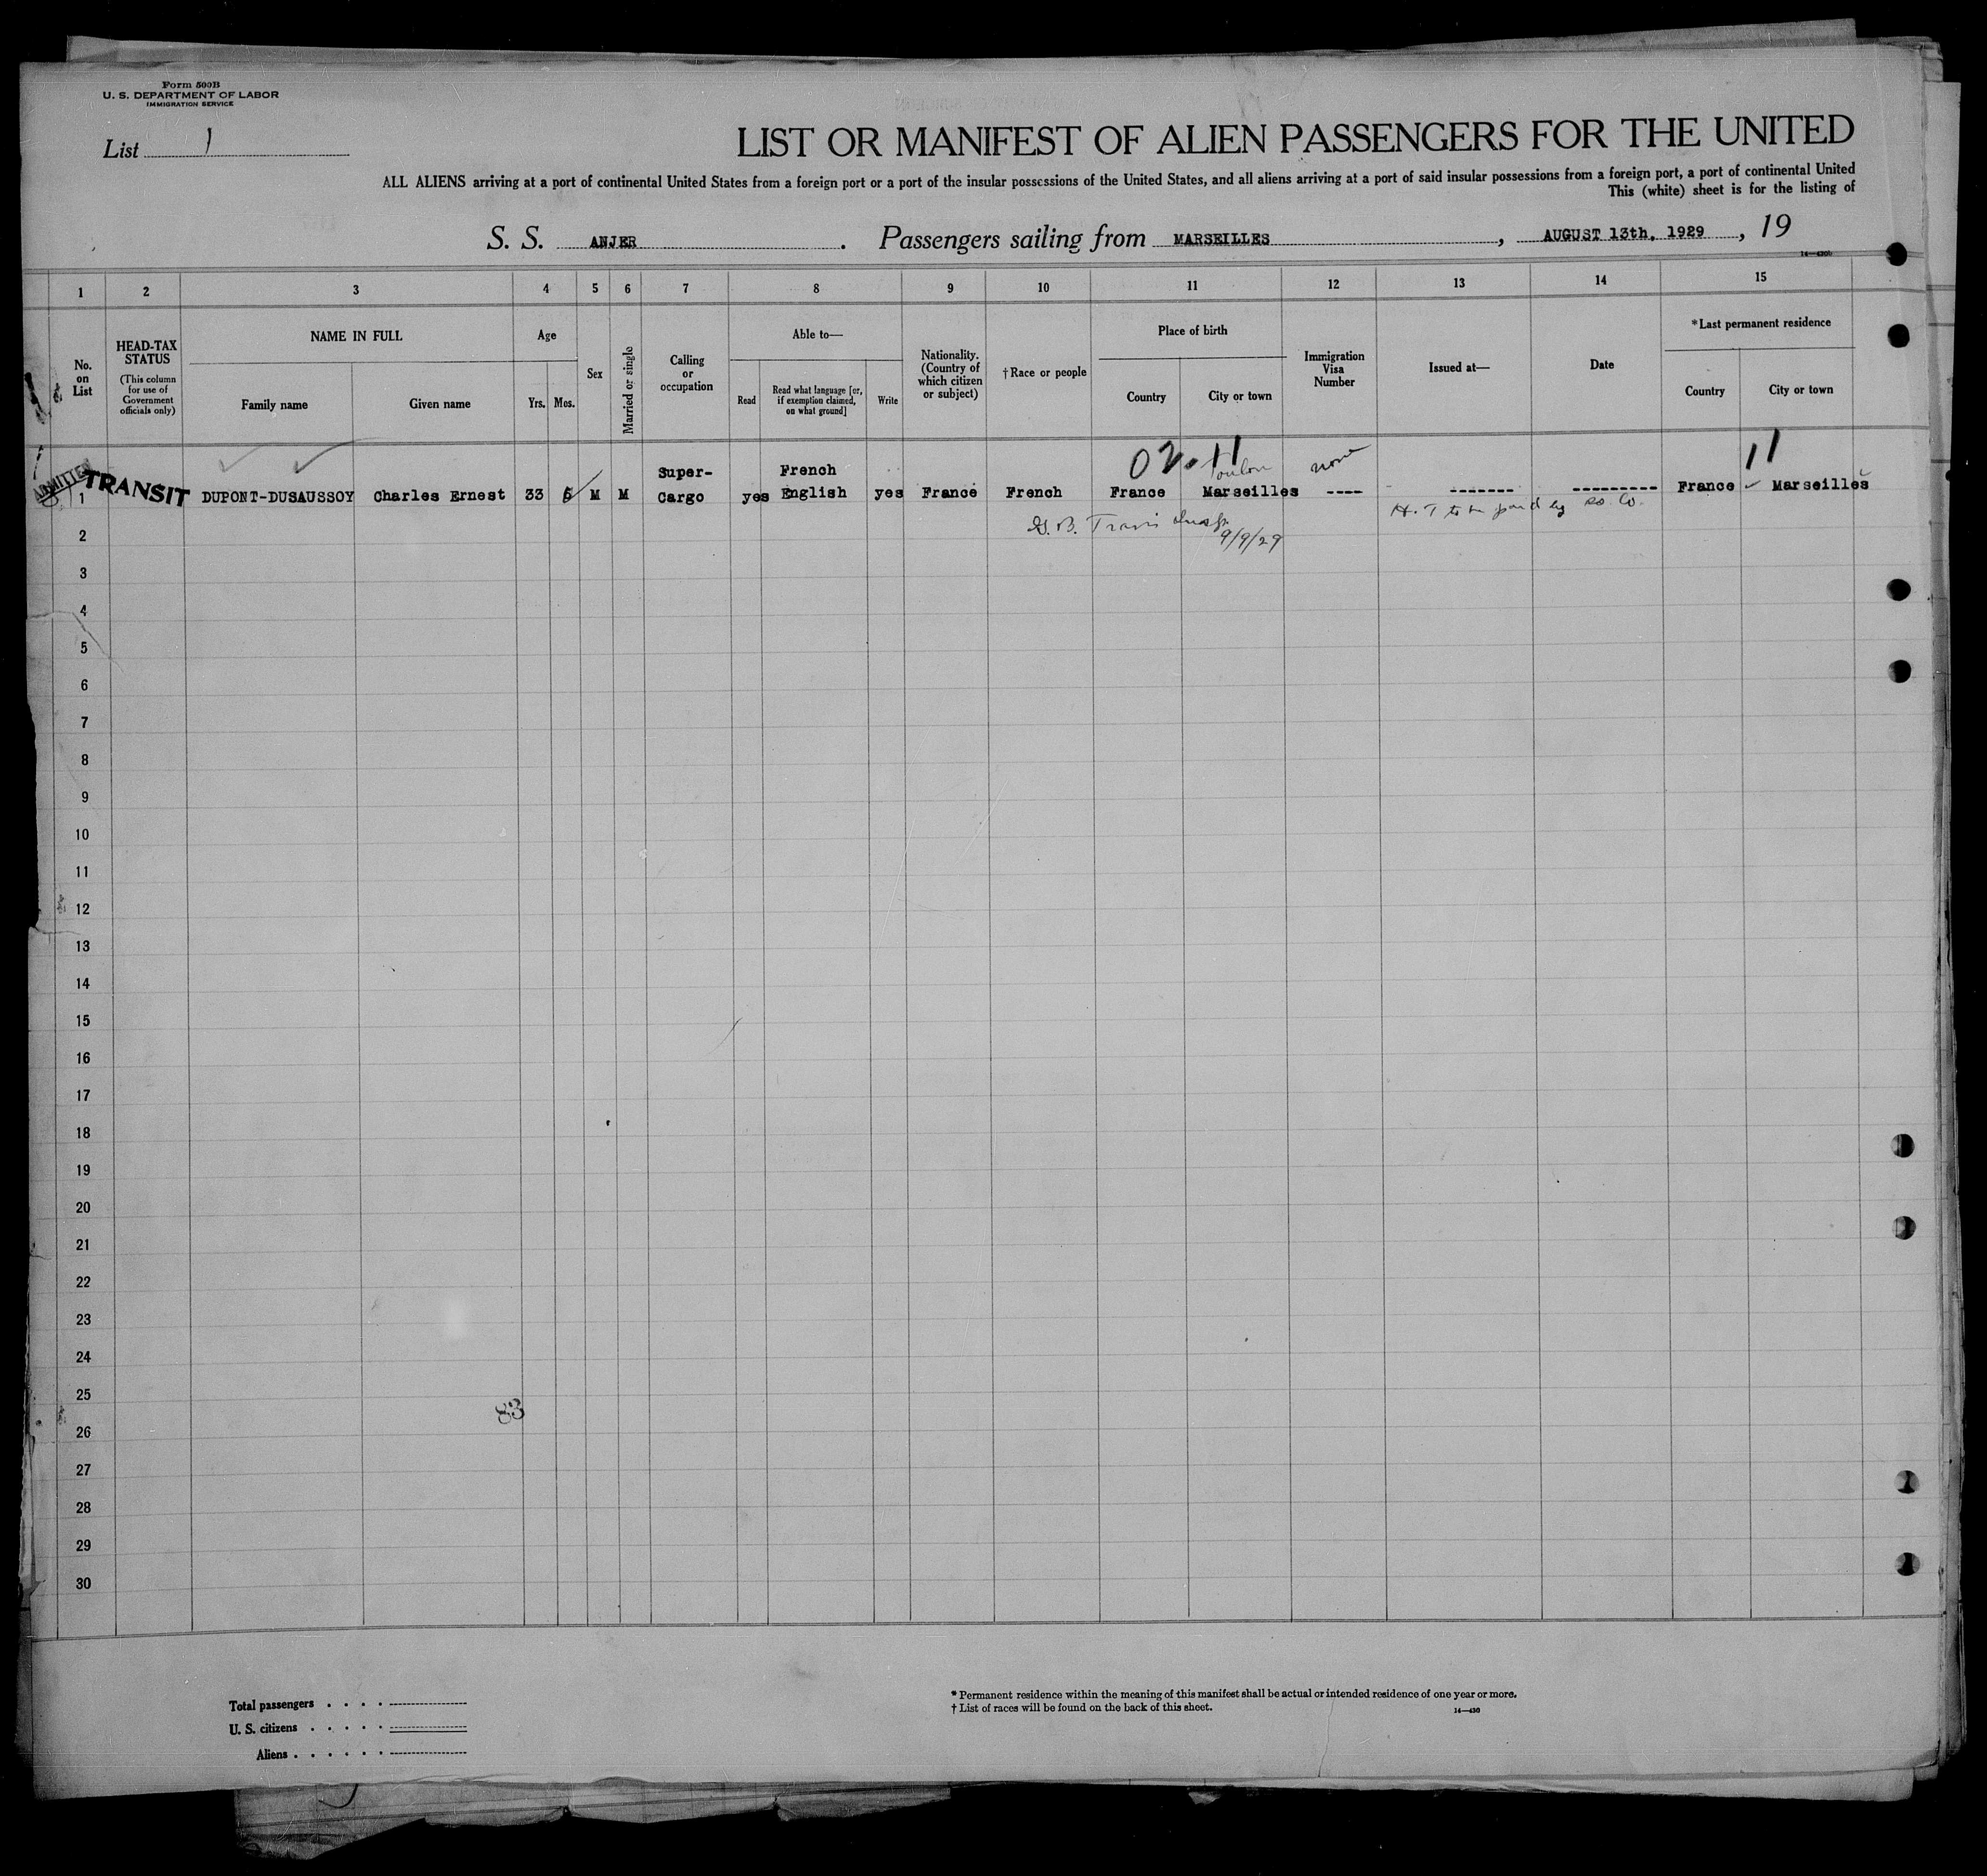 Form 500B
U. S. DEPARTMENT OF LABOR
IMMIGRATION SERVICE
List 1
LIST OR MANIFEST OF ALIEN PASSENGERS FOR THE UNITED
ALL ALIENS arriving at a port of continental United States from a foreign port or a port of the insular possessions of the United States, and all aliens arriving at a port of said insular possessions from a foreign port, a port of continental United
This (white) sheet is for the listing of
S. S. ANJER . Passengers sailing from MARSEILLES , AUGUST 13th, 1929 , 19
14—430b
1 2 3 4 5 6 7 8 9 10 11 12 13 14 15
No. on List
HEAD-TAX STATUS (This column for use of Government officials only)
NAME IN FULL
Family name
Given name
Age
Yrs.
Mos.
Sex
Married or single
Calling or occupation
Able to—
Read
Read what language [or, if exemption claimed, on what ground]
Write
Nationality. (Country of which citizen or subject)
†Race or people
Place of birth
Country
City or town
Immigration Visa Number
Issued at—
Date
*Last permanent residence
Country
City or town
02.11 none 11
ADMITTED
Super- French Toulon
1 TRANSIT DUPONT-DUSAUSSOY Charles Ernest 33 5 M M Cargo yes English yes France French France Marseilles ---- ------- --------- France Marseilles
H. T to be paid by SS. Co.
G. B. Travis Insp.
9/9/29
2
3
4
5
6
7
8
9
10
11
12
13
14
15
16
17
18
19
20
21
22
23
24
25
83
26
27
28
29
30
Total passengers . . . .
U. S. citizens . . . . .
Aliens . . . . . .
* Permanent residence within the meaning of this manifest shall be actual or intended residence of one year or more.
† List of races will be found on the back of this sheet.
14—430